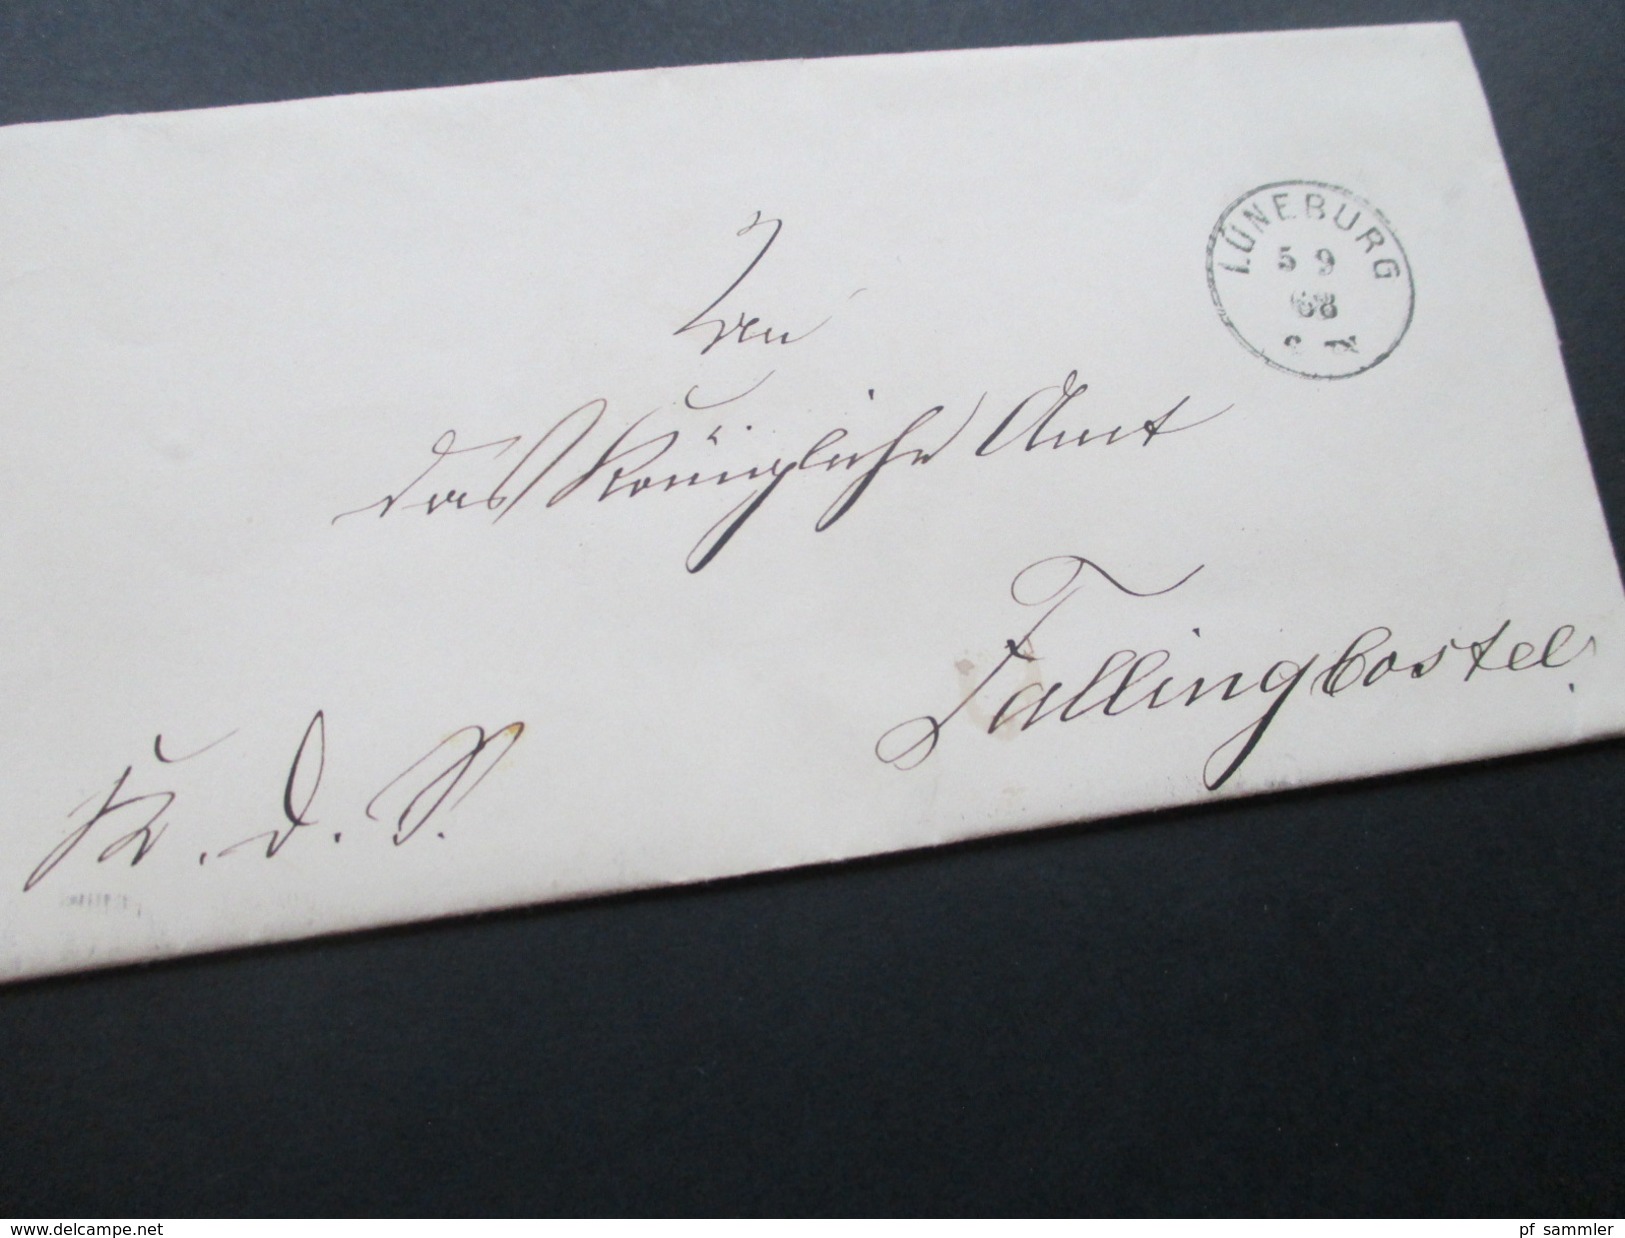 LÜNEBURG
5 9
68
An
das Königliche Amt
Fallingbostel.
K. D. S.
delcampe.net
pf_sammler